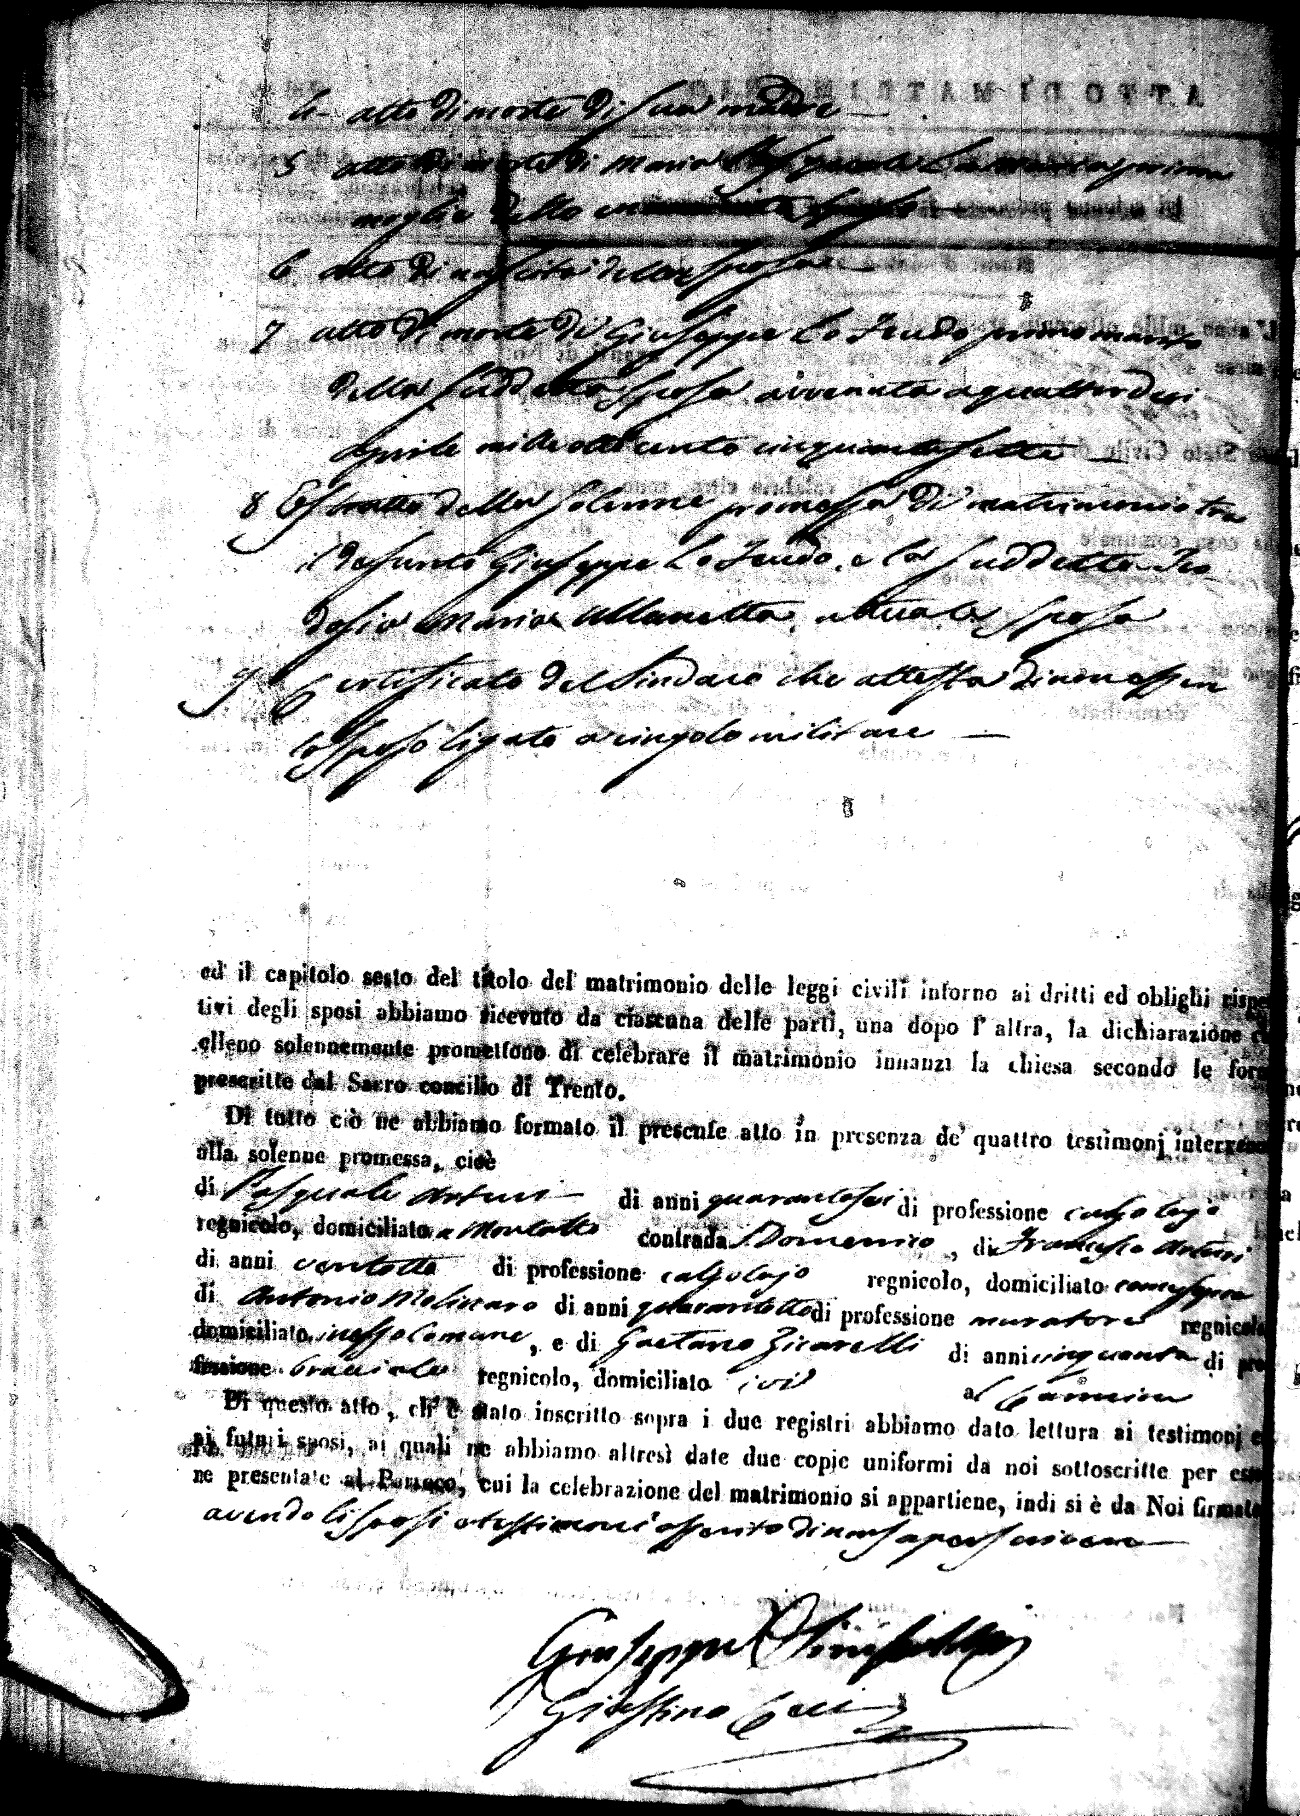 4- atto di morte di sua madre —
5 atto di morte di Maria prima
moglie dello sposo
6 atto di nascita della sposa —
7 atto di morte di Giuseppe Lo Feudo primo marito
della suddetta sposa avvenuta a quattordeci
aprile milleottocento cinquantasette —
8 Estratto della solenne promessa di matrimonio tra
il defunto Giuseppe Lo Feudo, e la suddetta Teo
dosia Maria attuale sposa
9 Certificato del Sindaco che attesta di non essere
lo sposo ligato a cingolo militare —
ed il capitolo sesto del titolo del matrimonio delle leggi civili intorno ai dritti ed oblighi rispet
tivi degli sposi abbiamo ricevuto da ciascuna delle parti, una dopo l'altra, la dichiarazione c
elleno solennemente promettono di celebrare il matrimonio innanzi la chiesa secondo le for
prescritte dal Sacro concilio di Trento.
Di tutto ciò ne abbiamo formato il presente atto in presenza de' quattro testimonj interven
alla solenne promessa, cioè
di Pasquale Arturi di anni quarantasei di professione calzolajo
regnicolo, domiciliato a Montalto contrada S. Domenico, di Francesco Arturi
di anni ventotto di professione calzolajo regnicolo, domiciliato come sopra
di Antonio Molinaro di anni quarantotto di professione muratore regnicolo
domiciliato in esso Comune, e di Gaetano Zicarelli di anni cinquanta di pro
fessione bracciale regnicolo, domiciliato ivi al Carmine
Di questo atto, ch'è stato inscritto sopra i due registri abbiamo dato lettura ai testimonj e
ai futuri sposi, ai quali ne abbiamo altresì date due copie uniformi da noi sottoscritte per ess
ne presentate al Parroco, cui la celebrazione del matrimonio si appartiene, indi si è da Noi firmato
avendo li sposi e testimoni asserito di non saper scrivere —
Giuseppe
Giustino Ceci